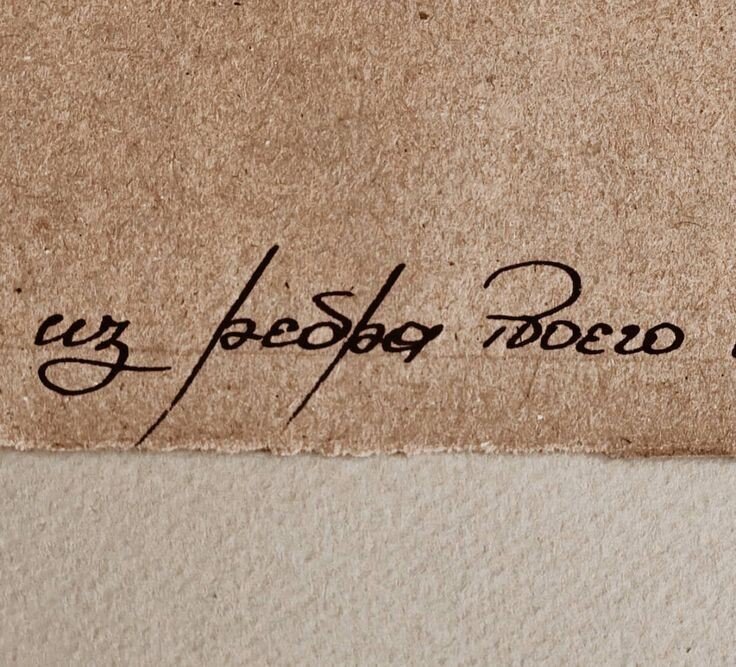 из ребра твоего